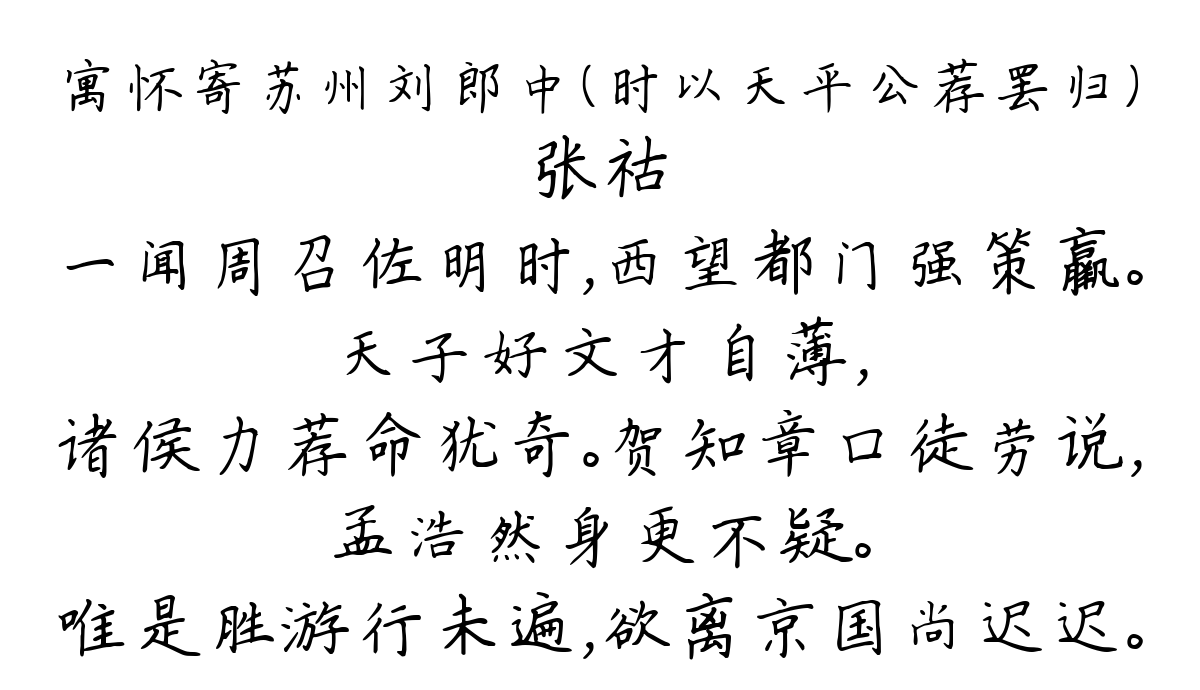 寓怀寄苏州刘郎中(时以天平公荐罢归)
张祜
一闻周召佐明时,西望都门强策羸。
天子好文才自薄,
诸侯力荐命犹奇。贺知章口徒劳说,
孟浩然身更不疑。
唯是胜游行未遍,欲离京国尚迟迟。